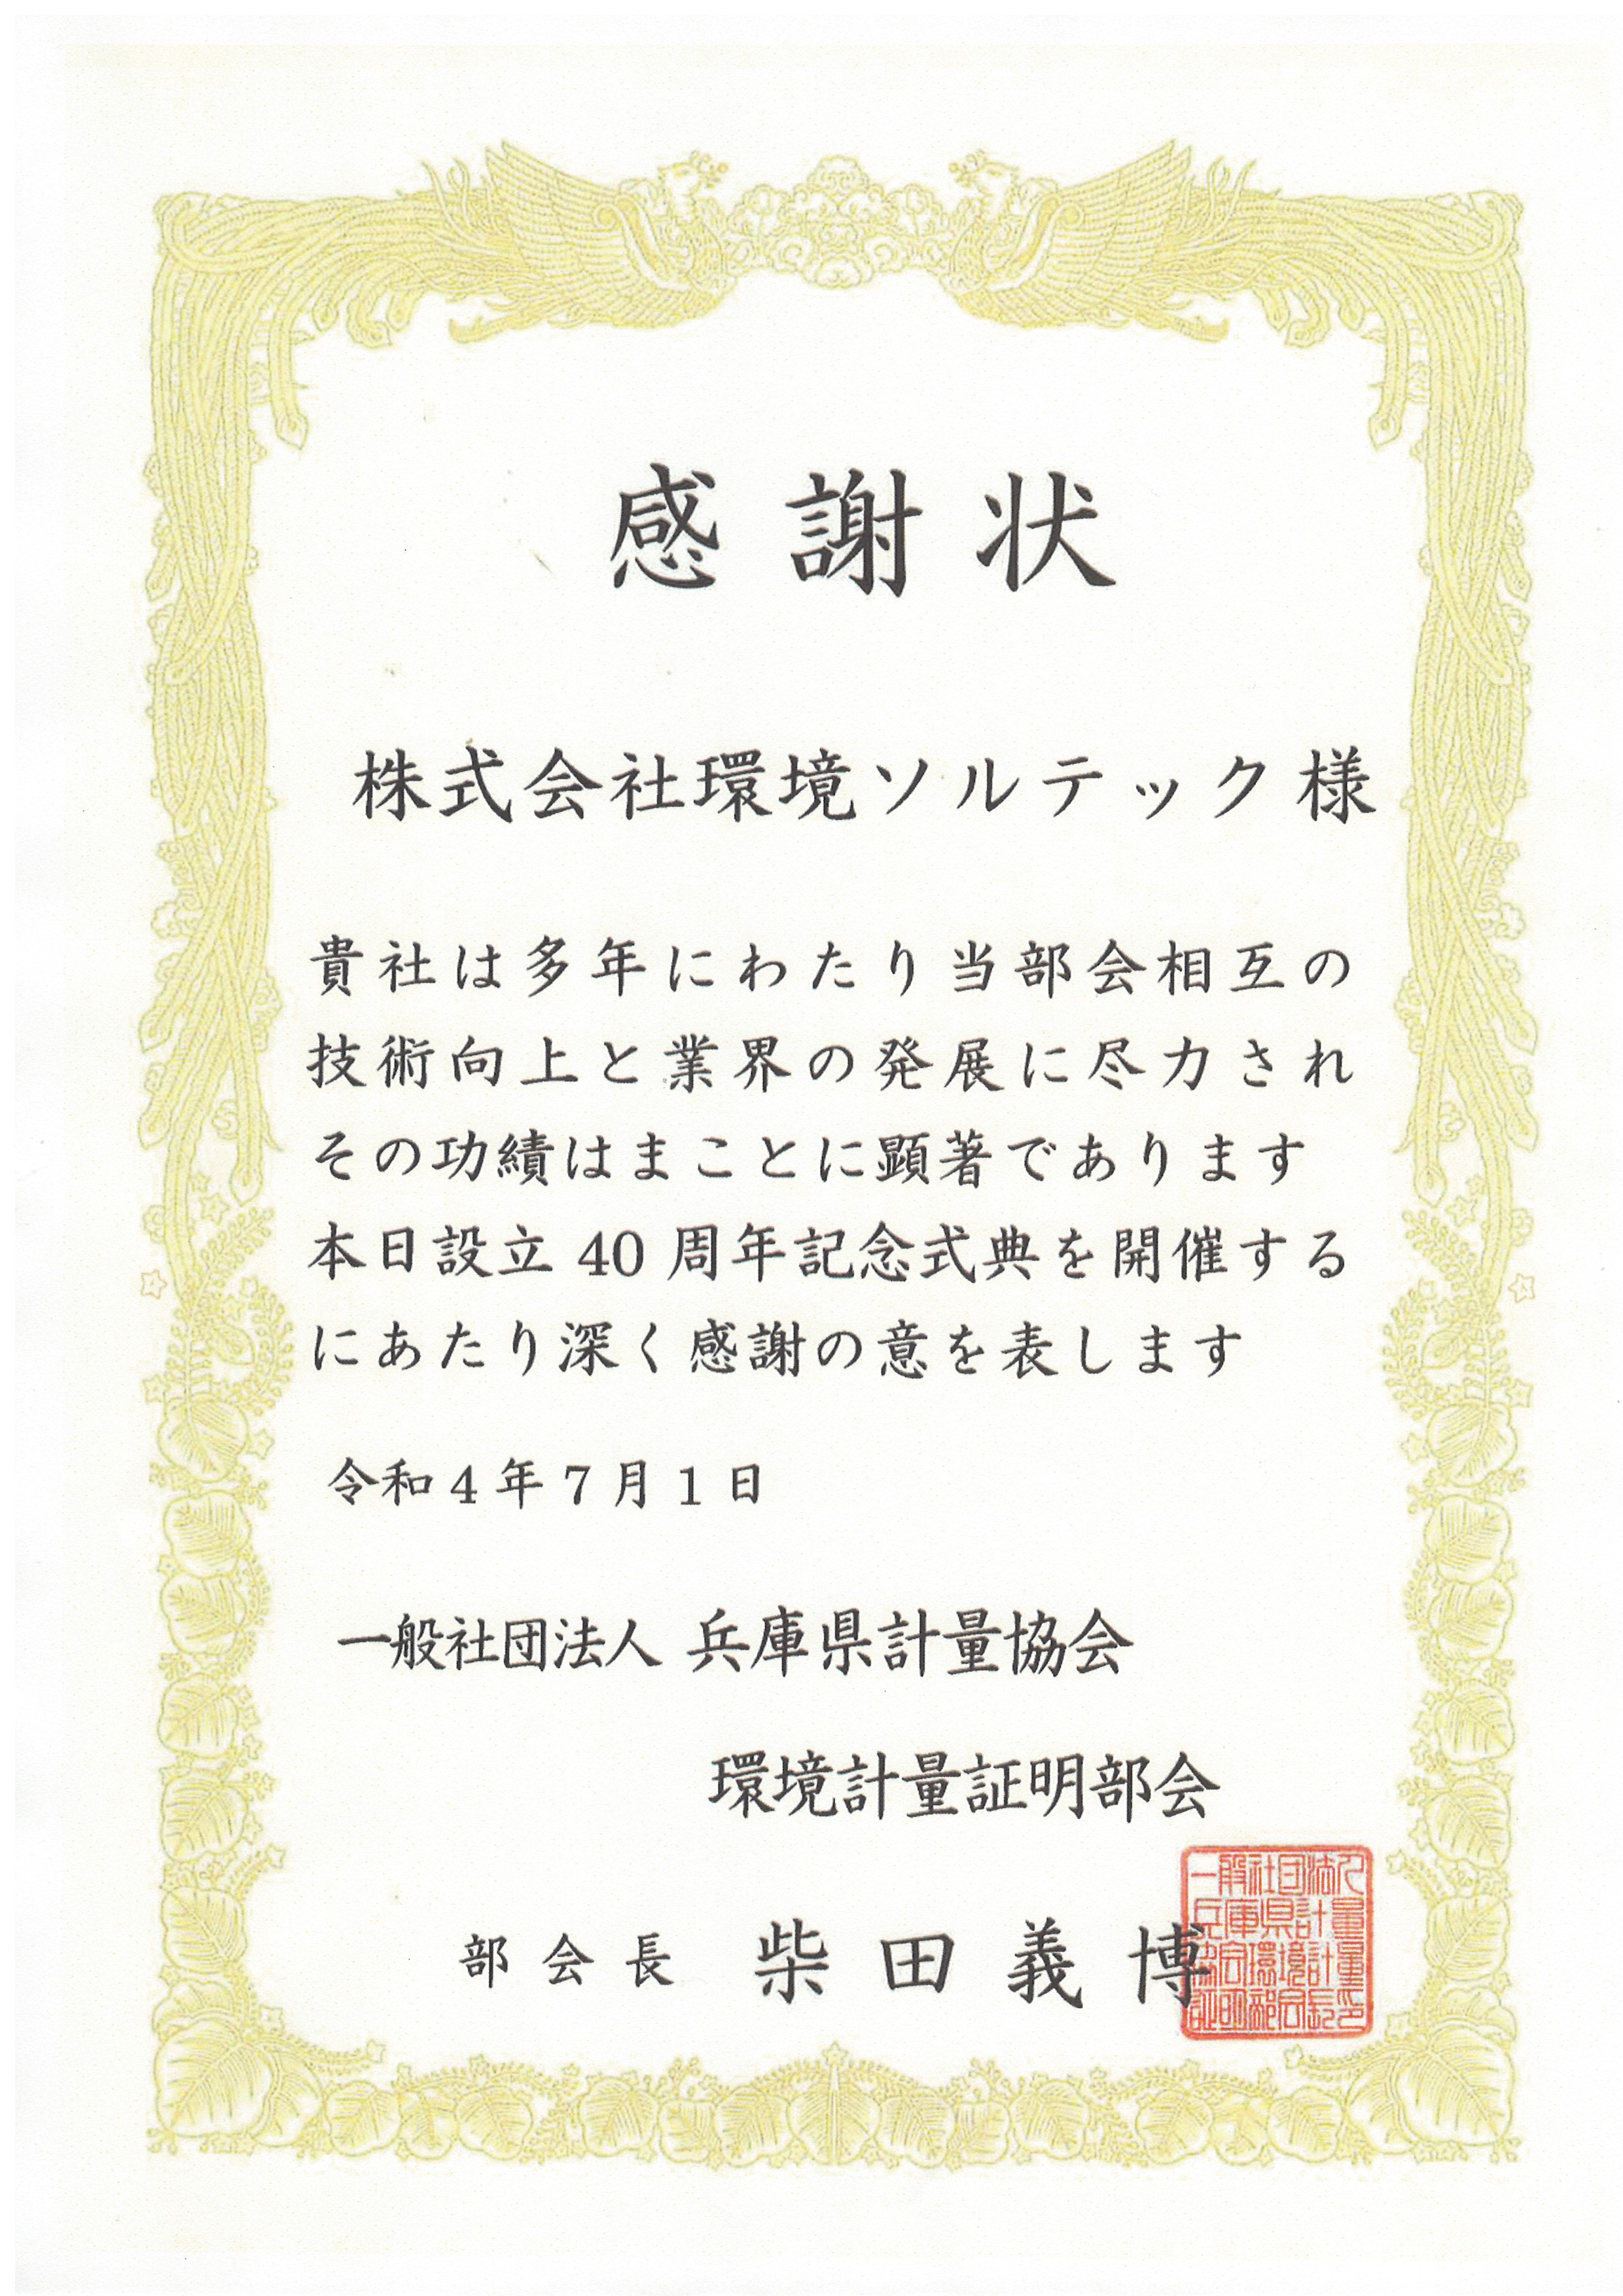 感謝状
株式会社環境ソルテック様
貴社は多年にわたり当部会相互の
技術向上と業界の発展に尽力され
その功績はまことに顕著であります
本日設立40周年記念式典を開催する
にあたり深く感謝の意を表します
令和4年7月1日
一般社団法人 兵庫県計量協会
環境計量証明部会
部会長 柴田義博
一般社団法人
兵庫県計量
協会環境計量
証明部会長印